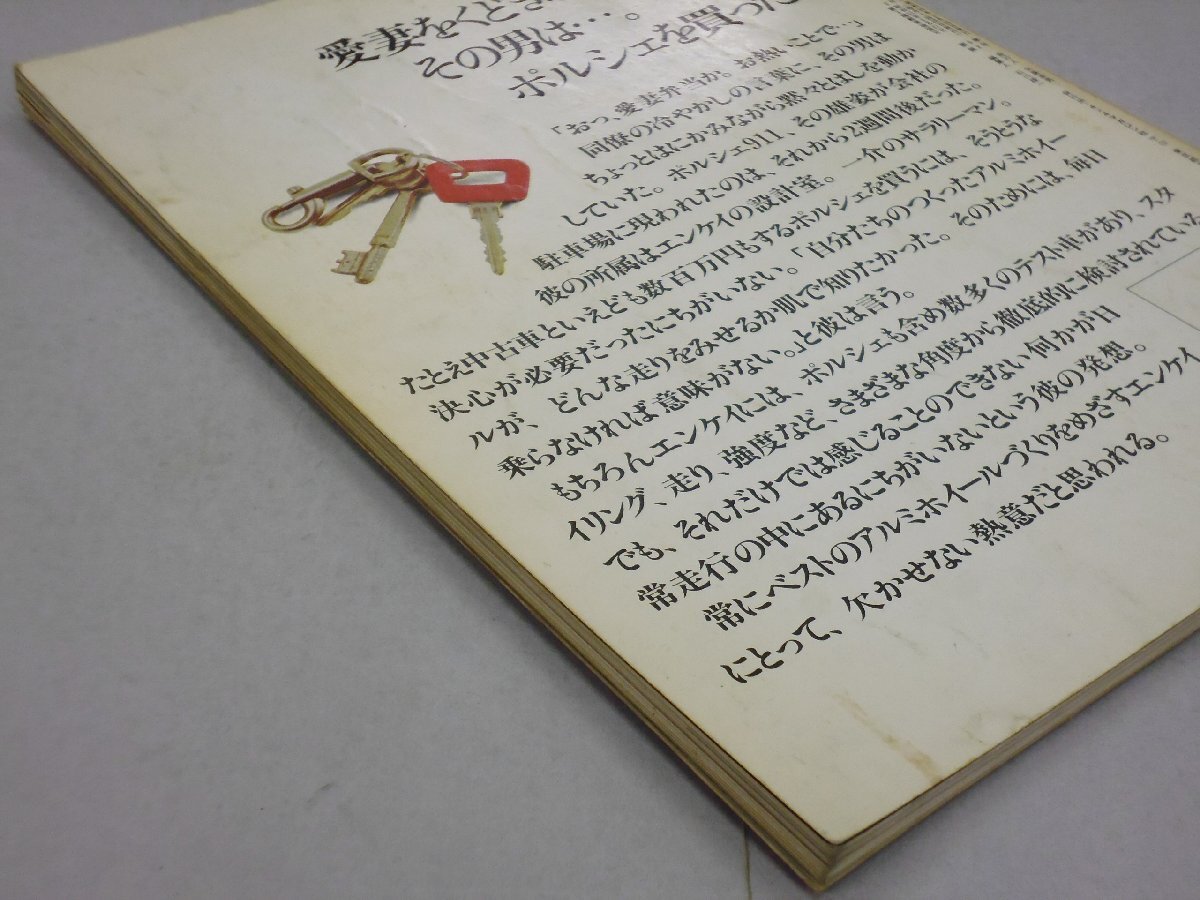 愛妻をくどき
その男は…。
ポルシェを買った
「おっ、愛妻弁当か。お熱いことで…」
同僚の冷やかしの言葉に、その男は
ちょっとはにかみながら黙々とはしを動か
していた。ポルシェ911、その雄姿が会社の
駐車場に現われたのは、それから2週間後だった。
彼の所属はエンケイの設計室。一介のサラリーマン。
たとえ中古車といえども数百万円もするポルシェを買うには、そうとうな
決心が必要だったにちがいない。「自分たちのつくったアルミホイー
ルが、どんな走りをみせるか肌で知りたかった。そのためには、毎日
乗らなければ意味がない。」と彼は言う。
もちろんエンケイには、ポルシェも含め数多くのテスト車があり、スタ
イリング、走り、強度など、さまざまな角度から徹底的に検討されている
でも、それだけでは感じることのできない何かが日
常走行の中にあるにちがいないという彼の発想。
常にベストのアルミホイールづくりをめざすエンケイ
にとって、欠かせない熱意だと思われる。